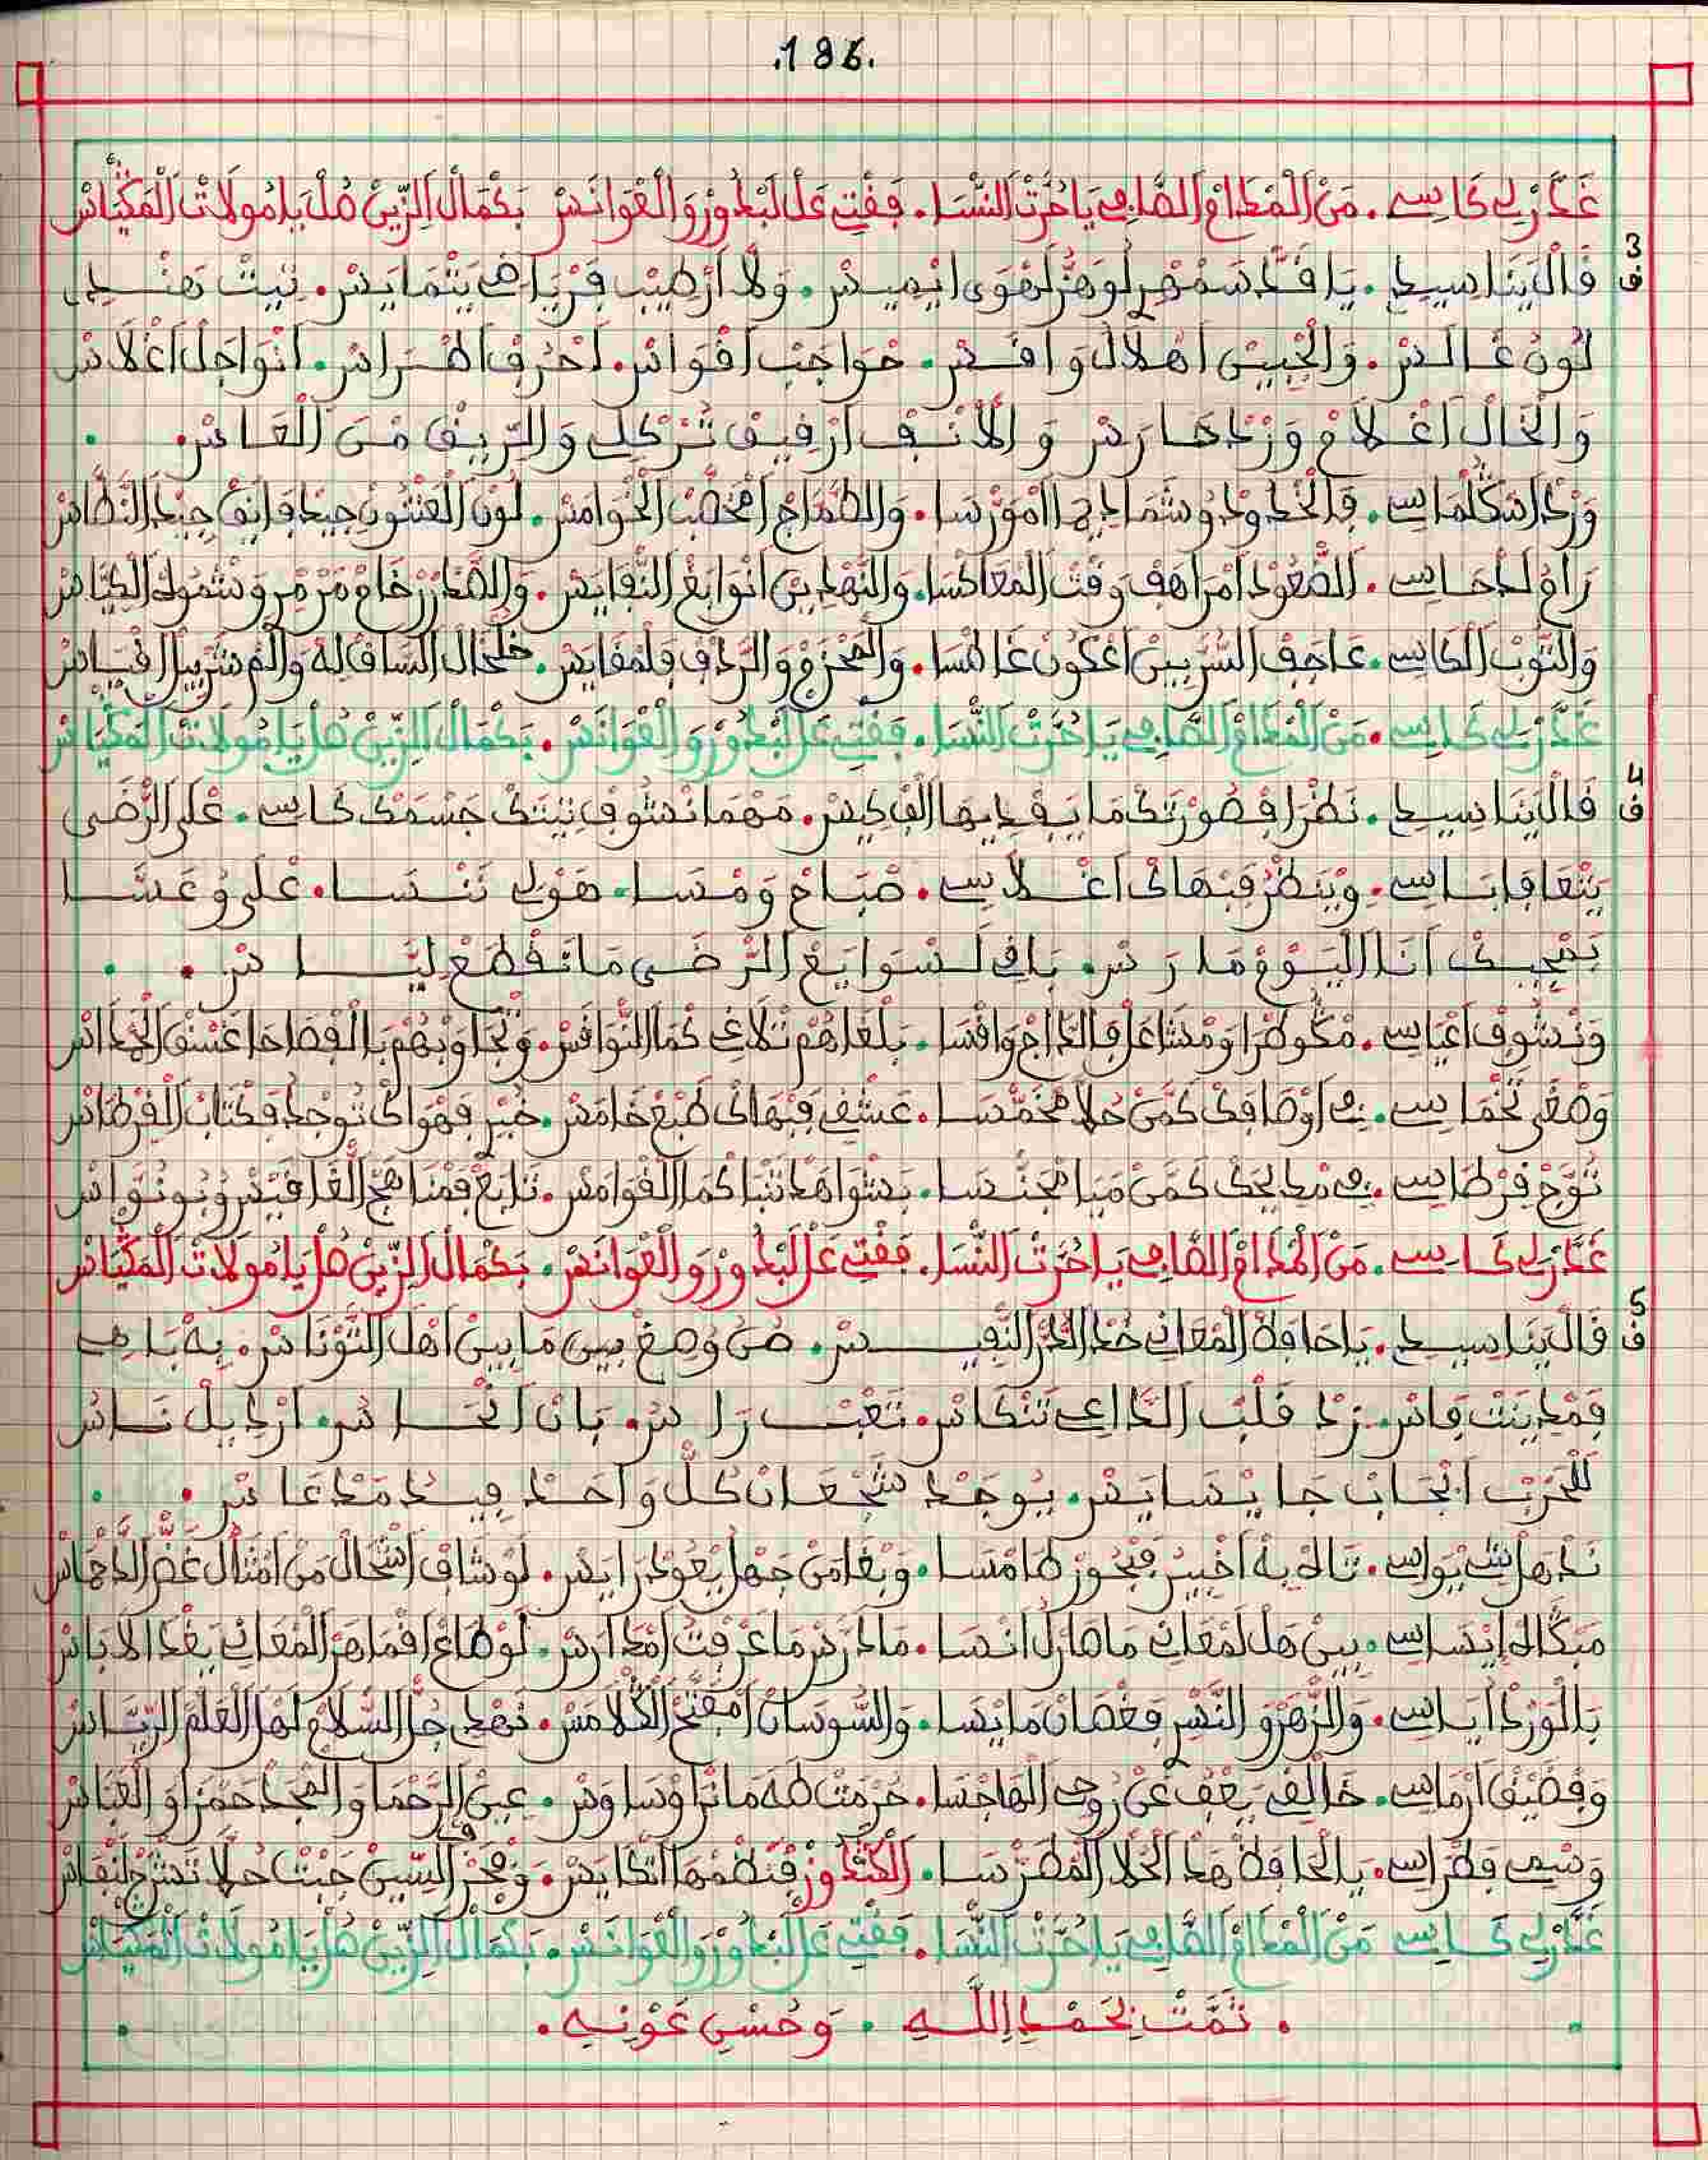 .186.
غَدَّرْ لِي كَاسِي . مَنْ الْمْدَامْ الصَّافِي يَا خُرْتْ النّْسَا . فَقْتِي عَلْ لَبْدُورْ وَالْغْوَانَسْ بَكْمَالْ الزِّينْ هْلْ يَا مُولَاتْ الْمَكْيَاسْ
3 ف قَالْ يَنَا سِيدِي . يَا قَدّْ سَمْهْرِي لُوهَزّْ لَهْوَى ايْمِيسْ . وَلَّا ارْطِيبْ فَرْيَاضْ يَتْمَايَسْ . تِيتْ هَنْدِي
لُونْ غَالَسْ . وَالْجْبِينْ اهْلَالْ وَاقَسْ . حْوَاجَبْ اقْوَاسْ . احْرُفْ اطْرَاسْ . انْوَاجَلْ اغْلَاسْ
وَالْخَالْ اغْلَامْ وَرْدْ حَارَسْ وَالْأَنْفْ ارْقِيقْ تُرْكِي وَالرِّيقْ مْنَ الْغَاسْ .
وَرْدْ اشْكْلْمَاسِي . فَالْخْدُودْ وُشَمَّا دِيهَا امْوَرْسَا . وَالطَّمَّاجْ امْخَضَّبْ الْخْوَامَسْ . لُونْ الْعَنْنُونْ جِيدْ فَايَقْ جِيدْ النَّطَّاسْ
رَاوْ لَدْحَاسِي . الصّْعُودْ امْرَاهَفْ وَقْتْ الْمْعَاكْسَا . وَالنَّهْدِينْ انْوَابَغْ النّْفَايَسْ . وَالصّْدَرْ رْخَامْ مَرْمْرِي وَشْمُوكْ الْكِيَّاسْ
وَالتُّوبْ الْكَاسِي . عَاجَفْ السُّرِّيِينْ اعْكُونْ غَاطْسَا . وَالْمَحْزَمْ وَالرّْدَفْ فَلْمْقَايَسْ . خَلْخَالْ السَّاقْ لِهْ وَالْمْ شَرْبِيلْ اقْيَاسْ
غَدَّرْ لِي كَاسِي . مَنْ الْمْدَامْ الصَّافِي يَا خُرْتْ النّْسَا . فَقْتِي عَلْ لَبْدُورْ وَالْغْوَانَسْ . بَكْمَالْ الزِّينْ هْلْ يَا مُولَاتْ الْمَكْيَاسْ
4 ف قَالْ يَنَا سِيدِي . نَظْرَا فْصُورْتَكْ مَا يَفْدِيهَا الْفْ كِيسْ . مَهْمَا نْشُوفْ تِيتَكْ جَسْمَكْ كَاسِي . عْلَى الرّْضَى
يَتْعَافَا بَاسِي . وْيَنْظَرْ فَبْهَاكْ اغْلَاسِي . صْبَاحْ وَمْسَا . هَوْلِي تَنْسَا . عْلَى وُعَسَّا
نَعْجِبَكْ انَا الْيُومْ فَارَسْ . بَاقِي لَسْوَايَعْ الرّْضَى مَا نَقْطَعْ لِيَّاسْ .
وَنْشُوفْ اعْيَاسِي . مَكُّو طْرَا وَمْشَاعَلْ فَالدَّاجْ وَاقْسَا . بَلْغَاهُمْ تْلَاغِي كْمَا النّْوَاقَسْ . وَتْجَاوَبْهُمْ بَالْفْصَاحَا عَسْقْ الْحَدَّاسْ
وَصْغَى تَخْمَاسِي . فِي اوْصَافَكْ كَمَّنْ حُلَّا مْخَمْسَا . عَشْقِي فَبْهَاكْ طَبْعْ خَامَسْ . خُبْرِي فَهْوَاكْ تُوجْدْ فَكْتَابْ الْقَرْطَاسْ
تَوَّجْ قَرْطَاسِي . فِي مْدِيحَكْ كَمَّنْ مَيَا مْجَنْسَا . بَشْوَاهَدْ تَنْبَا كْمَا الْقْوَامَسْ . تَابَعْ فَمْنَاهَجْ الْقَافْيِيسْ وُبُونُوَّاسْ
غَدَّرْ لِي كَاسِي . مَنْ الْمْدَامْ الصَّافِي يَا خُرْتْ النّْسَا . فَقْتِي عَلْ لَبْدُورْ وَالْغْوَانَسْ . بَكْمَالْ الزِّينْ هْلْ يَا مُولَاتْ الْمَكْيَاسْ
5 ف قَالْ يَنَا سِيدِي . يَا حَافَظْ الْمْعَانِي خُدْ الدُّرّْ النّْفِيسْ . صُنْ وُصْغْ بِينْ مَا بِينْ اهْلْ التُّونَاسْ . بِهْ بَاهِي
فَمْدِينْتْ فَاسْ . زْدْ قَلْبْ الدَّاعِي تَنْكَاسْ . تَعْبْ رَاسْ . بَانْ اخْسَاسْ . ارْدِيلْ نَاسْ
لَلْحَرْبْ انْجَابْ جَا يْسَايَسْ . يُوجَدْ شَجْعَانْ كُلّْ وَاحَدْ فِيدْ مَدْعَاسْ .
نَدْهَلْ بَتْبْوَاسِي . تَاهْ بِهْ اخْبِيرْ فَبْحُورْ طَامْسَا . وَبْقَا مَنْ جَهْلْ يْعُودْ رَايَسْ . لَوْ شَافْ اشْحَالْ مَنْ امْثَالْ غَضّْ الدَّهَّاسْ
مَبْكَاهْ ايْسَاسِي . بِينْ هَلْ لَمْعَانِي مَاهَا رَكْ انْسَا . مَادَارَسْ مَا عْرَفْتْ امْدَارَسْ . لَوْ طَاعْ افْمَاهَرْ الْمْعَانِي يَغْدَا لَا بَاسْ
بَالْوَرْدْ ايَاسِي . وَالزّْهَرْ وَالنَّسْرِي فَغْصَانْ مَايْسَا . وَالسُّوسَانْ امْفَتَّحْ الْكْلَامَسْ . نَهْدِي جُلّْ السّْلَامْ لَهْلْ الْعَلْمْ الرِّيَّاسْ
وَفْضِيقْ ارْمَاسِي . خَالْقِي يَعْفِ عْنْ رُوحِي الْهَاجْسَا . حُرْمَتْ طَهَ مَا تْرَا وْسَاوَسْ . عِينْ الرَّحْمَا وَالْمْجَدْ حَمْزَا وَالْعَبَّاسْ
وَسْمِي فَطْرَاسِي . يَالْحَافَظْ هَدْ الْحُلَّا الْمْطَرْسَا . الْكَنْدُوزْ فْنَظْمْهَا اتْكَايَسْ . وَفْحَرْ السِّينْ جِبْتْ حُلَّا تَشْرَحْ لَنْفَاسْ
غَدَّرْ لِي كَاسِي مَنْ الْمْدَامْ الصَّافِي يَا خُرْتْ النّْسَا . فَقْتِي عَلْ لَبْدُورْ وَالْغْوَانَسْ . بَكْمَالْ الزِّينْ هْلْ يَا مُولَاتْ الْمَكْيَاسْ
. تَمَّتْ بِحَمْدِ اللَّهِ . وَحُسْنِ عَوْنِهِ .